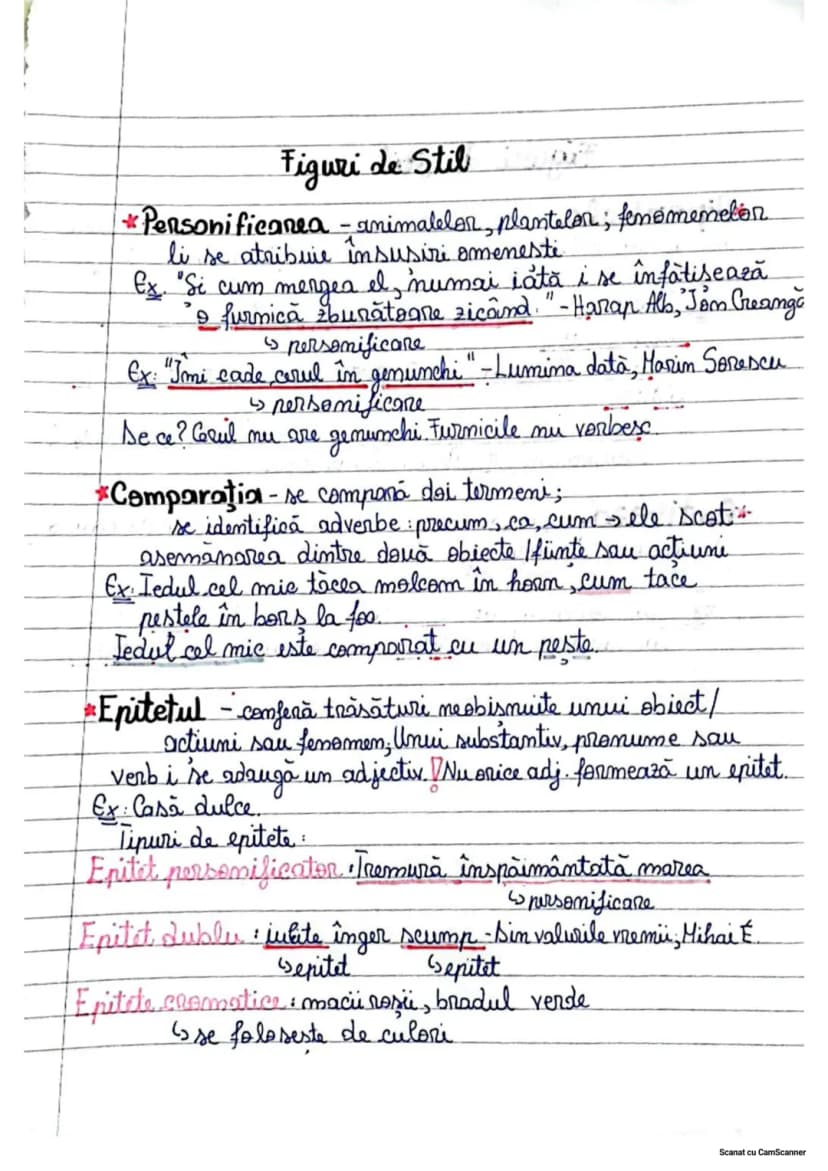 Figuri de Stil
*Personificarea - animalelor, plantelor; fenomenelor
li se atribuie însusiri omenesti
Ex. "Si cum mergea el, numai iată i se înfătisează
o furnică zburătoare zicând." - Harap Alb, Ion Creangă
↳ personificare
Ex: "Îmi cade cerul în genunchi" - Lumina dată, Marin Sorescu
↳ personificare
De ce? Cerul nu are genunchi. Furnicile nu vorbesc.
*Comparația - se compară doi termeni;
se identifică adverbe: precum, ca, cum → ele scot
asemănarea dintre două obiecte / ființe sau acțiuni
Ex: Iedul cel mic tăcea molcom în horn, cum tace
pestele în bors la foc.
Iedul cel mic este comparat cu un pește.
*Epitetul - conferă trăsături neobisnuite unui obiect/
actiuni sau fenomen; Unui substantiv, pronume sau
verb i se adaugă un adjectiv. ! Nu orice adj. formează un epitet.
Ex: Casă dulce.
Tipuri de epitete:
Epitet personificator: Tremură înspăimântată marea
↳ personificare
Epitet dublu: iubite înger scump - Din valurile vremii, Mihai E.
↳ epitet ↳ epitet
Epitete cromatice: macii roșii, bradul verde
↳ se foloseste de culori
Scanat cu CamScanner